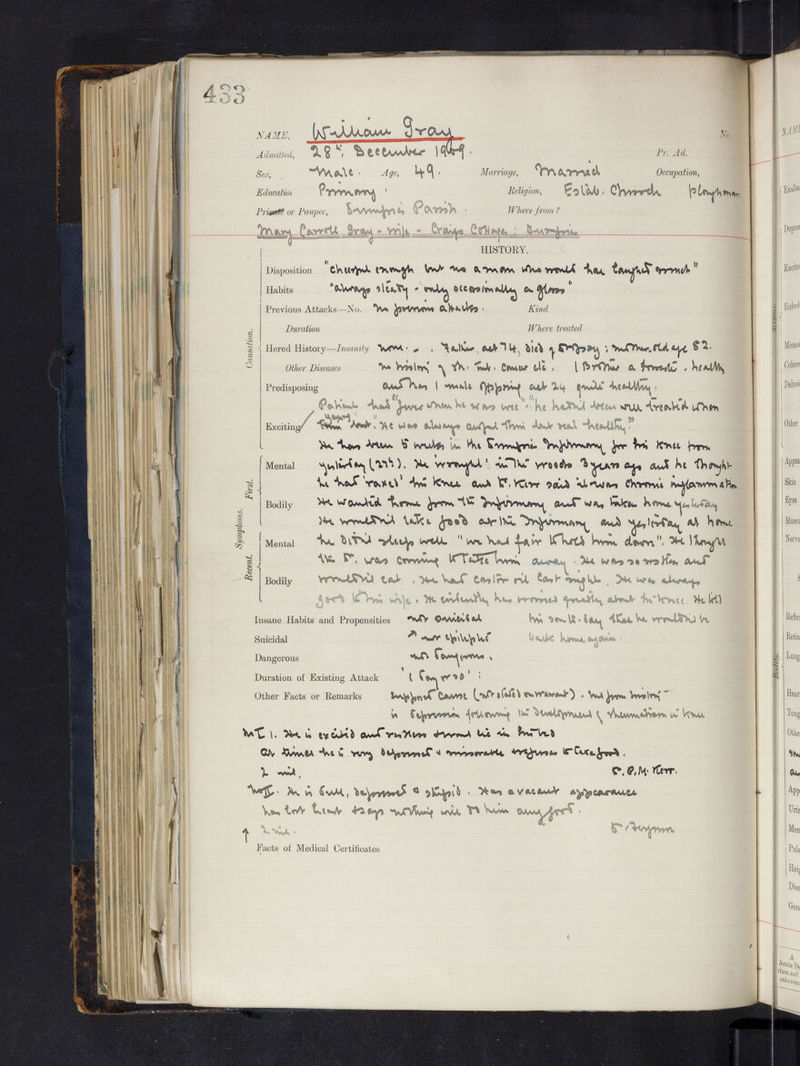 433
NAME, William Gray No.
Admitted, 28th. December 1909. Pr. Ad.
Sex, Male. Age, 49. Marriage, Married Occupation,
Education Primary. Religion, Estab. Church ploughman
Private or Pauper, Dumfries Parish. Where from?
Mary Carroll Gray - wife - Craigs Cottage: Dumfries
HISTORY.
Causation.
Disposition "cheerful enough but no a man who would hae laughed much"
Habits "always steady - only occasionally a glass"
Previous Attacks—No. no previous attacks. Kind
Duration Where treated
Hered History—Insanity none. Father, aet 74, died of dropsy; mother, old age 82.
Other Diseases no history of Ph. Tub. Cancer etc. 1 brother a healthy
Predisposing and has 1 male offspring aet 24 quite healthy.
Patient had "fever when he was wee". "he hadna been weel treated when
Exciting young". He was always awful thin but real healthy."
He has been 5 weeks in the Dumfries Infirmary for his knee from
Symptoms.
First.
Mental yesterday (27th). He wrought in the woods 3 years ago and he thought
he had 'raxed' his knee and Dr. Kerr said it was chronic inflammation
Bodily He wanted home from the Infirmary and was taken home yesterday
He wouldn't take food at the Infirmary and yesterday at home
Recent.
Mental he didna sleep well "we had fair to hold him down". He thought
the Dr. was coming to take him away. He was so restless and
Bodily wouldn't eat. He had castor oil last night. He was always
good to his wife. He evidently has worried greatly about the knee. He let
Insane Habits and Propensities not suicidal his son to-day that he wouldn't be
Suicidal " not epileptic back home again.
Dangerous not dangerous.
Duration of Existing Attack '1 day or so':
Other Facts or Remarks Supposed cause (not stated on warrant). but from history
is depression following the development of rheumatism in knee
MC I. He is excited and restless
At times he is very depressed & miserable & refuses to take food.
2 nil. C. P. M. Kerr.
MC II. He is dull, depressed & stupid. Has a vacant appearance
has lost heart & says nothing will do him any good.
2 nil.
Facts of Medical Certificates